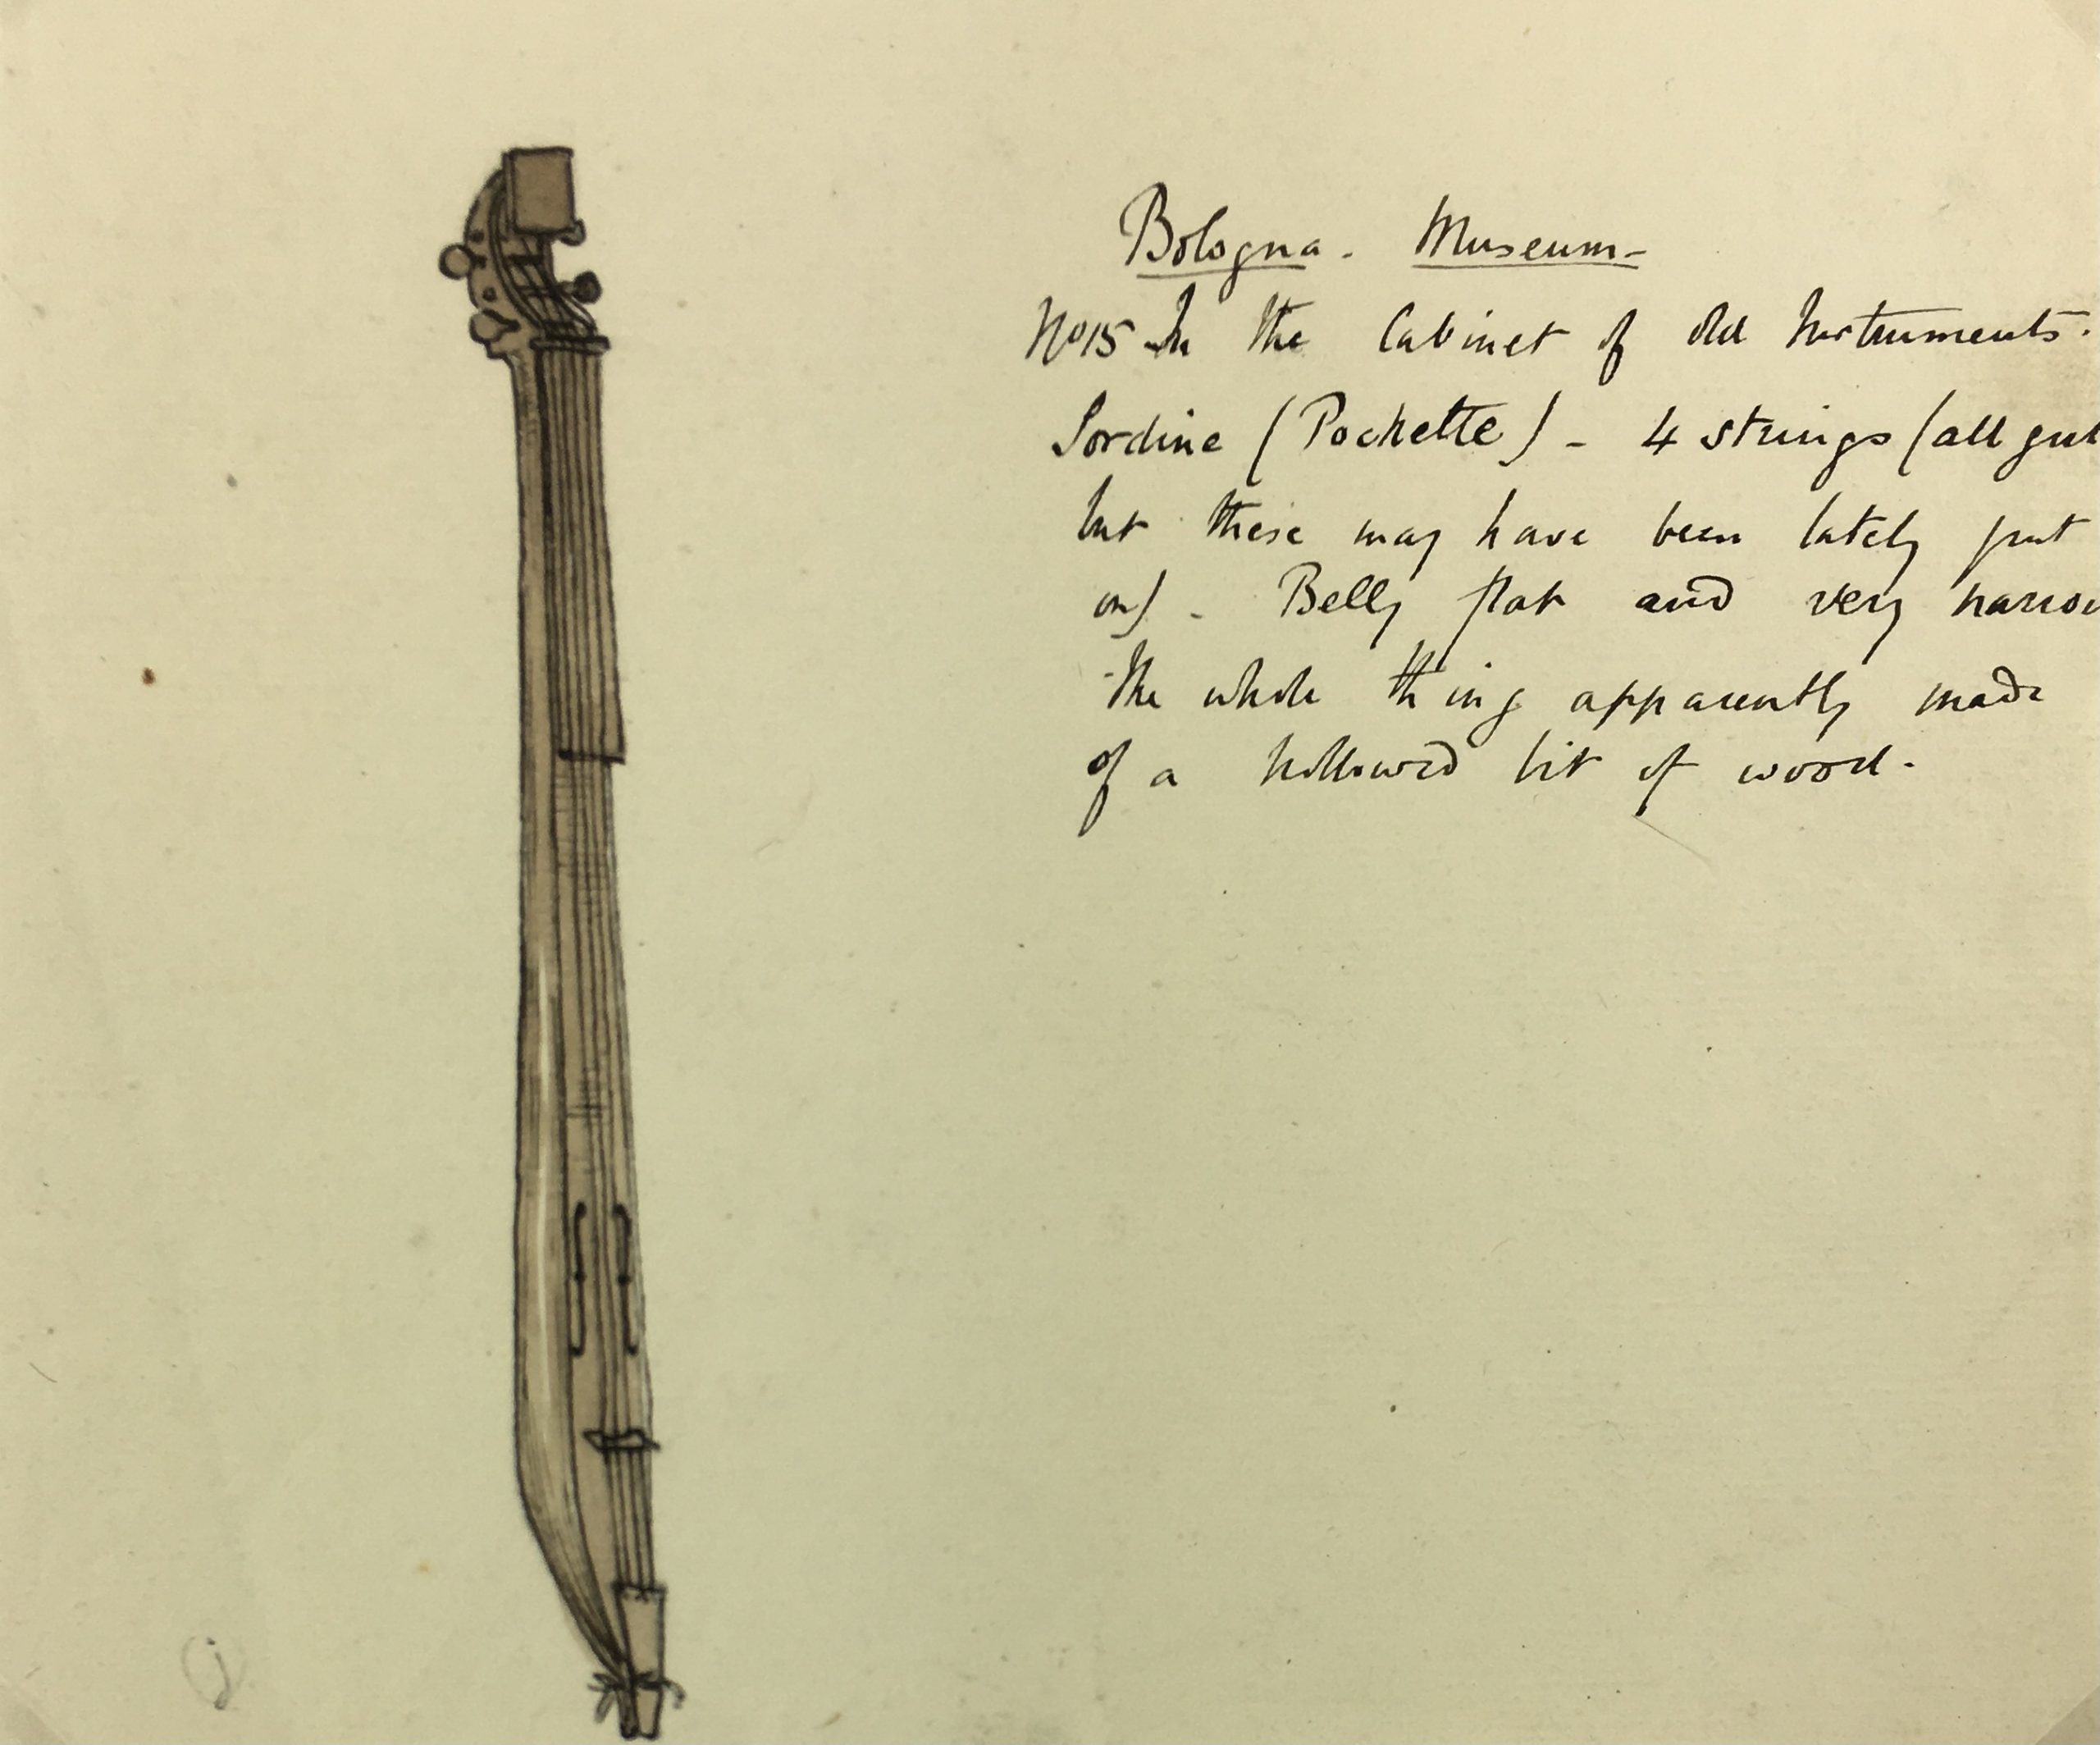 Bologna. Museum-
No 15 In the Cabinet of old Instruments.
Sordine (Pochette) - 4 strings (all gut
but these may have been lately put
on) - Belly flat and very narrow
The whole thing apparently made
of a hollowed bit of wood.
(j)